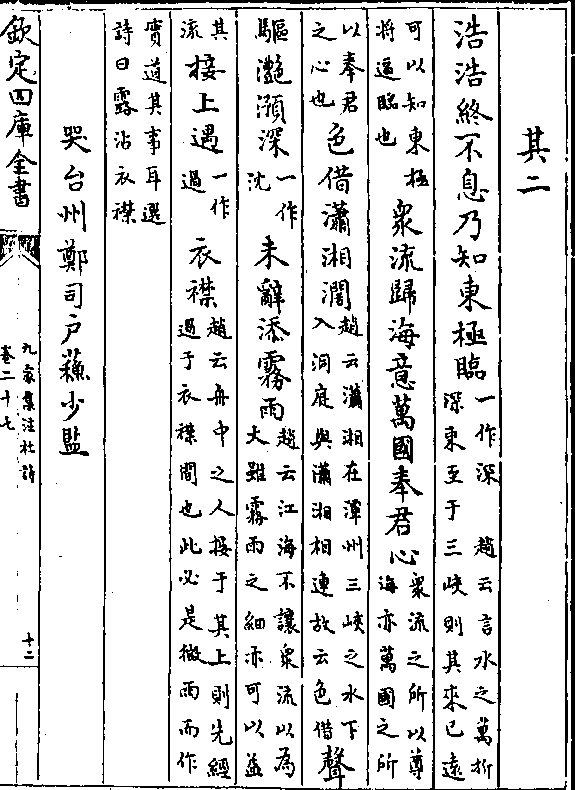 其二
浩浩終不息乃知東極臨
一作深 趙云言水之萬折
深東至于三峽則其來已遠
可以知東極
將逼臨也
衆流歸海意萬國奉君心
衆流之所以尊
海亦萬國之所
以奉君
之心也
色借瀟湘闊
趙云瀟湘在潭州三峽之水下
入洞庭與瀟湘相連故云色借
聲
驅灔澦深
一作
沈
未辭添霧雨
趙云江海不讓衆流以為
大雖霧雨之細亦可以益
其
流
接上遇
一作
過
衣襟
趙云舟中之人接于其上則先經
過于衣襟間也此必是微雨而作
實道其事耳選
詩曰露沾衣襟
哭台州鄭司戶蘇少監
欽定四庫全書
九家集注杜詩
卷二十七
十二